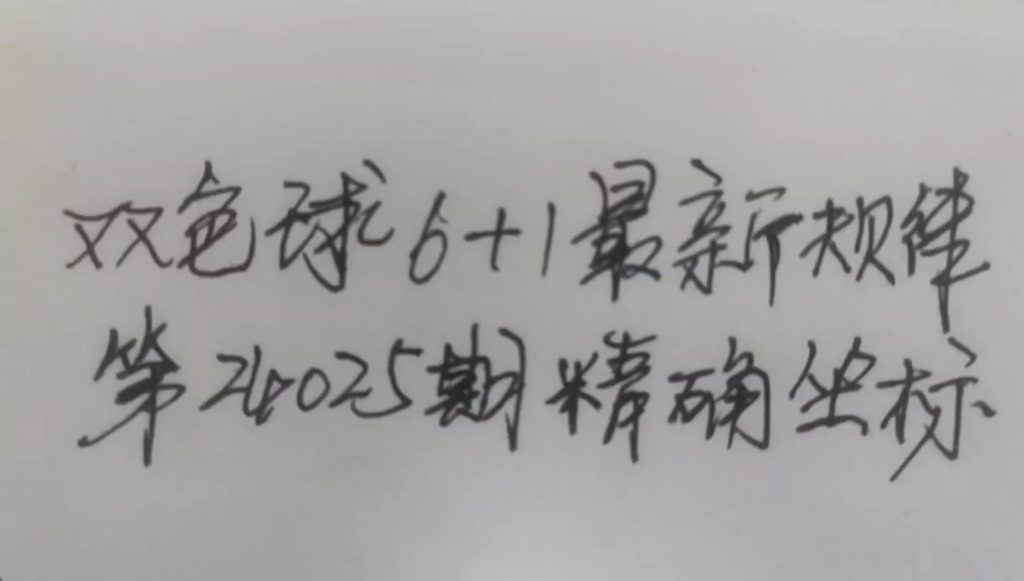 双色球6+1最新规律
第24025期精确坐标